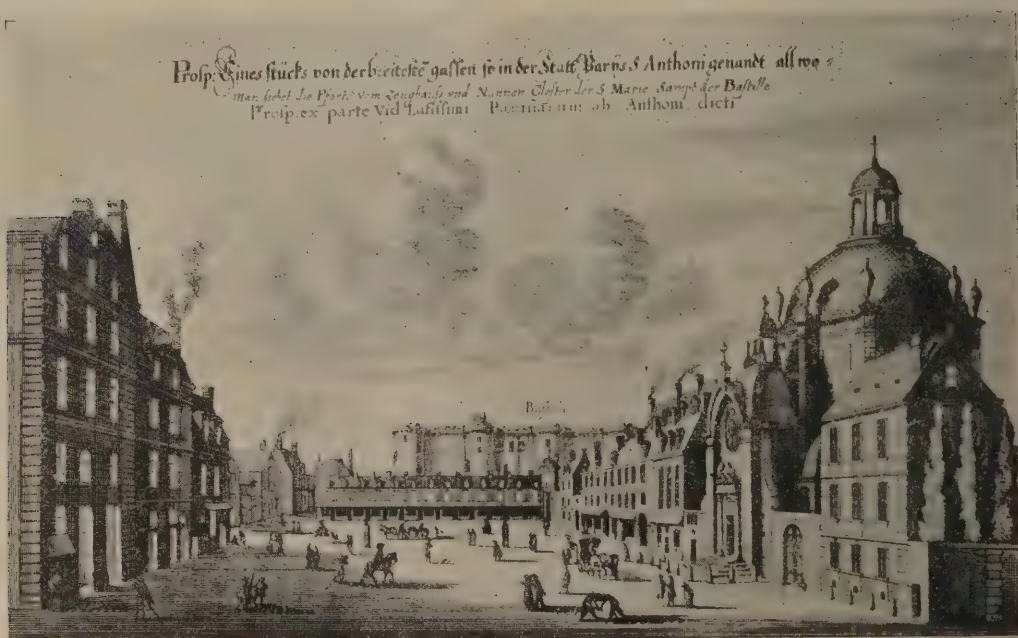 Prosp: Eines stücks von der breitestē gassen so in der Statt Pariis S Anthoni genandt all wo =
man siehet die Pforte vom Zeughauss vnd Nunnen Closter der S Marie Sampt der Bastille
Prosp. ex parte Vid Latissimi Parisiarum ab Anthoni dicti